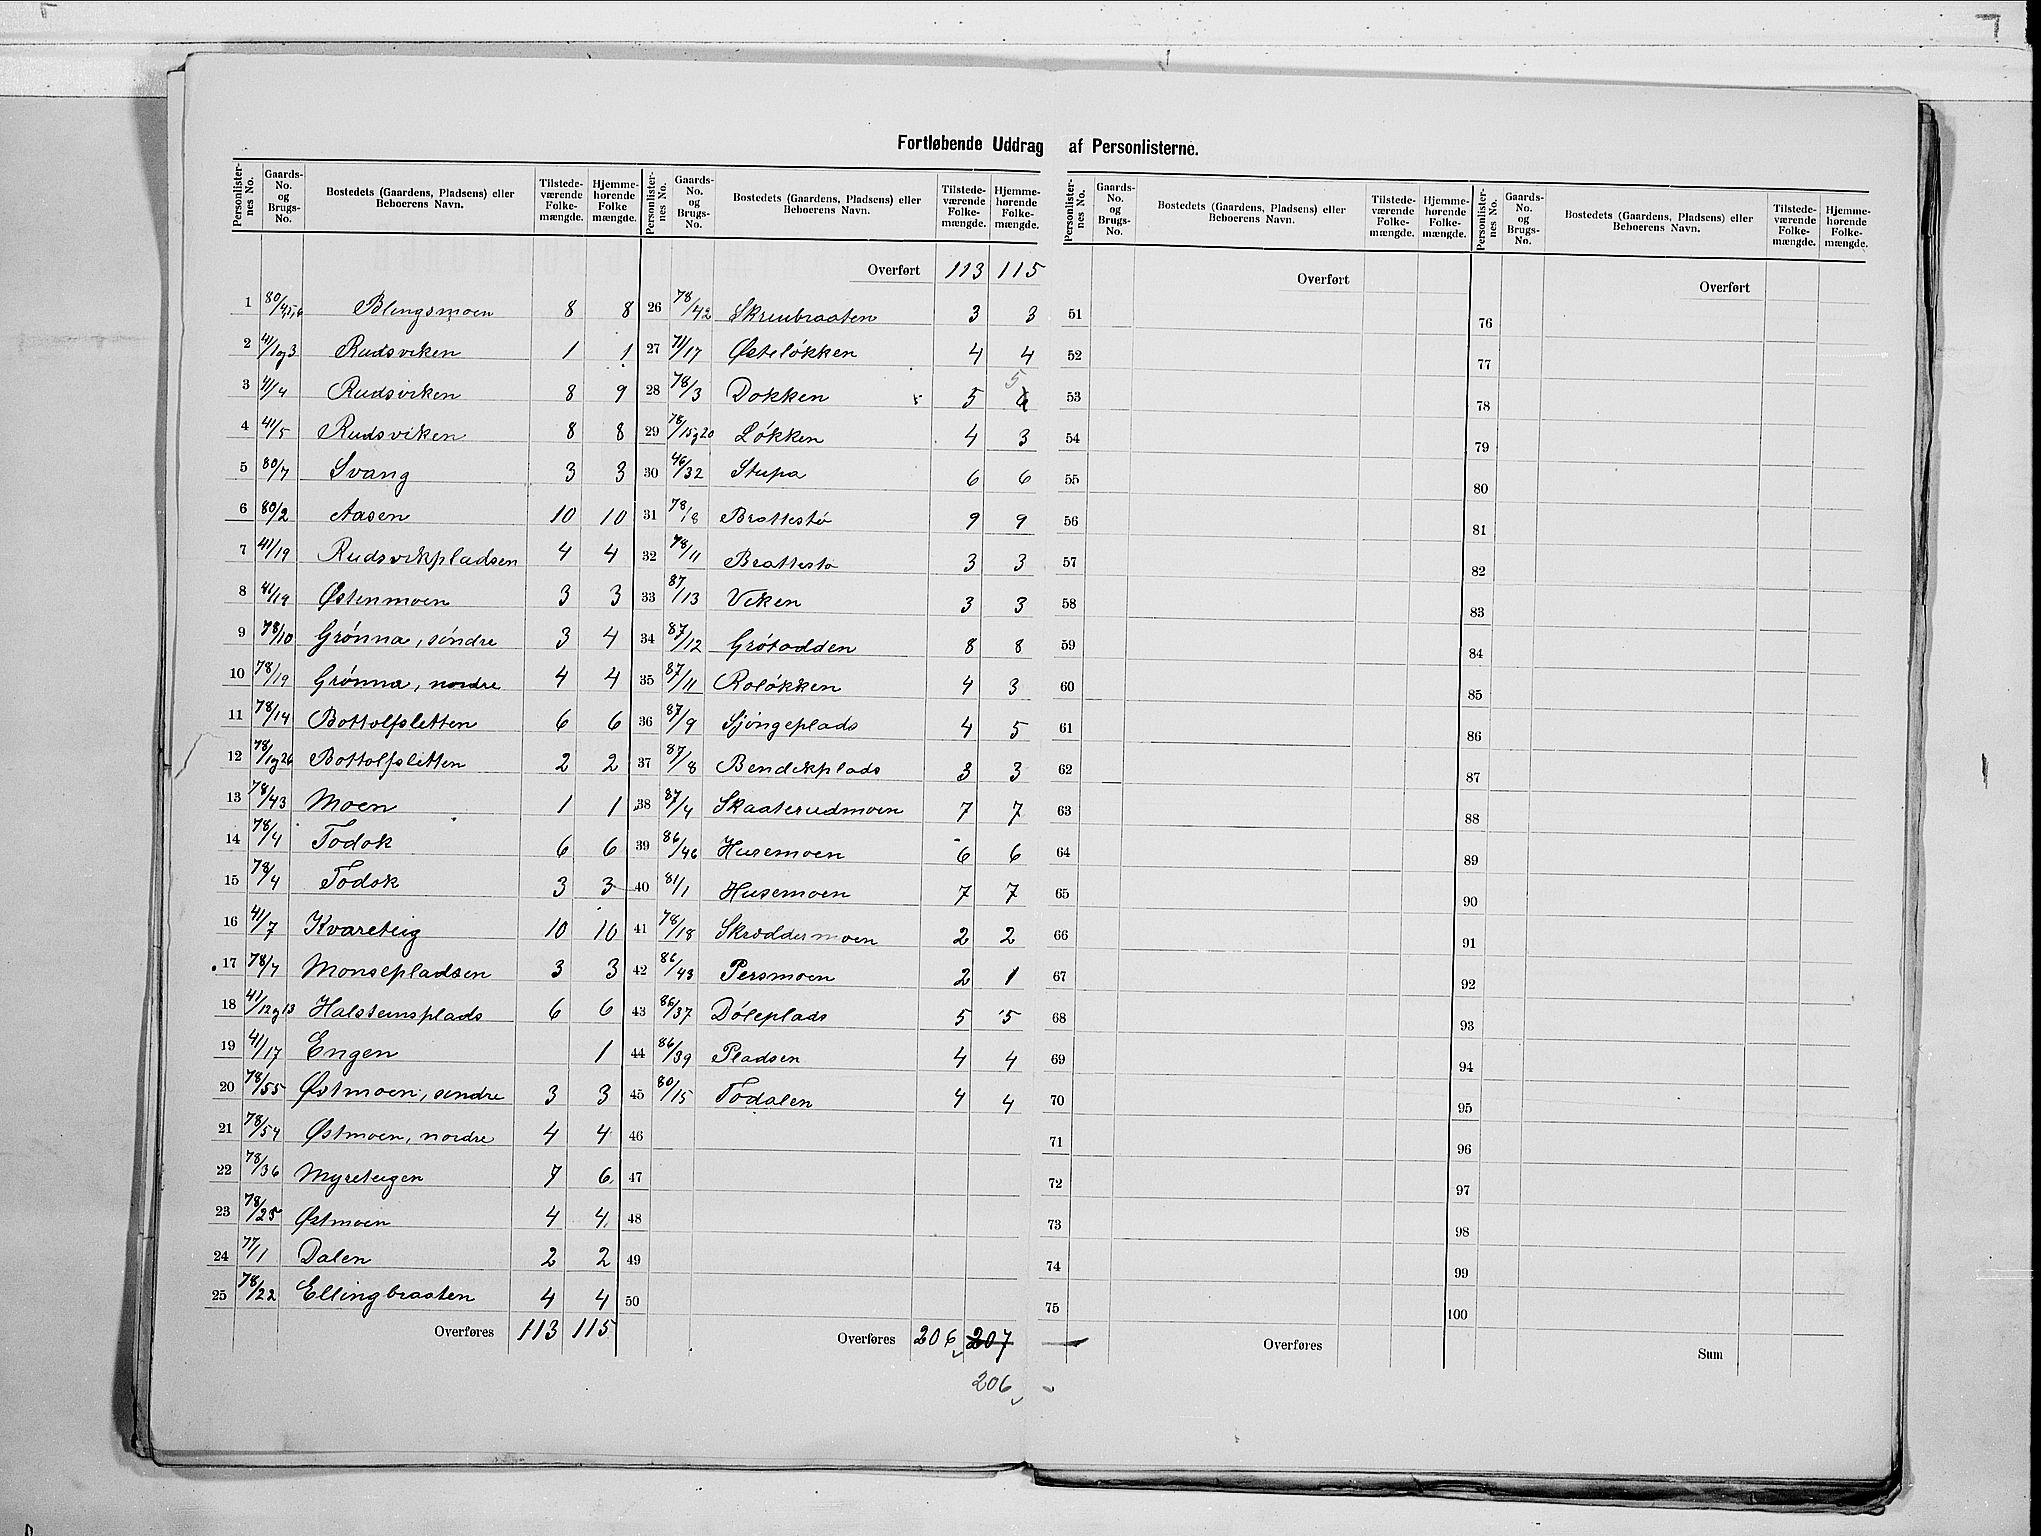 Fortløbende Uddrag af Personlisterne.
Personlister-nes No. Gaards-No. og Brugs-No. Bostedets (Gaardens, Pladsens) eller Beboerens Navn. Tilstede-værende Folke-mængde. Hjemme-hørende Folke mængde. Personlister-nes No. Gaards-No. og Brugs-No. Bostedets (Gaardens, Pladsens) eller Beboerens Navn. Tilstede-værende Folke-mængde. Hjemme-hørende Folke-mængde.
Overført 113 115
1 80/4,5,6 Blingsmoen 8 8
2 41/1og3 Rudsviken 1 1
3 41/4 Rudsviken 8 9
4 41/5 Rudsviken 8 8
5 80/7 Svang 3 3
6 80/2 Aasen 10 10
7 41/19 Rudsvikpladsen 4 4
8 41/19 Østenmoen 3 3
9 78/10 Grønna, søndre 3 4
10 78/19 Grønna, nordre 4 4
11 78/14 Bottolfsletten 6 6
12 78/1og26 Bottolfsletten 2 2
13 78/43 Moen 1 1
14 78/4 Todok 6 6
15 78/4 Todok 3 3
16 41/7 Kvareteig 10 10
17 78/7 Monsepladsen 3 3
18 41/12og13 Halsteinsplads 6 6
19 41/17 Engen 1
20 78/55 Østmoen, søndre 3 3
21 78/54 Østmoen, nordre 4 4
22 78/36 Myreteigen 7 6
23 78/25 Østmoen 4 4
24 77/1 Dalen 2 2
25 78/22 Ellingbraaten 4 4
Overføres 113 115
26 78/42 Skreubraaten 3 3
27 71/17 Østeløkken 4 4
28 78/3 Dokken 5 6 5
29 78/15og20 Løkken 4 3
30 46/32 Stupa 6 6
31 78/8 Brattestø 9 9
32 78/11 Brattestø 3 3
33 87/13 Viken 3 3
34 87/12 Grøtodden 8 8
35 87/11 Roløkken 4 3
36 87/9 Sjongeplads 4 5
37 87/8 Bendikplads 3 3
38 87/4 Skaaterudmoen 7 7
39 86/46 Husemoen 6 6
40 81/1 Husemoen 7 7
41 78/18 Skræddermoen 2 2
42 86/43 Persmoen 2 1
43 86/37 Døleplads 5 5
44 86/39 Pladsen 4 4
45 80/15 Tødalen 4 4
46
47
48
49
50
Overføres 206 207
206
Personlister-nes No. Gaards-No. og Brugs-No. Bostedets (Gaardens, Pladsens) eller Beboerens Navn. Tilstede-værende Folke-mængde. Hjemme-hørende Folke-mængde. Personlister-nes No. Gaards-No. og Brugs-No. Bostedets (Gaardens, Pladsens) eller Beboerens Navn. Tilstede-værende Folke-mængde. Hjemme-hørende Folke-mængde.
Overført
51
52
53
54
55
56
57
58
59
60
61
62
63
64
65
66
67
68
69
70
71
72
73
74
75
Overføres
Overført
76
77
78
79
80
81
82
83
84
85
86
87
88
89
90
91
92
93
94
95
96
97
98
99
100
Sum